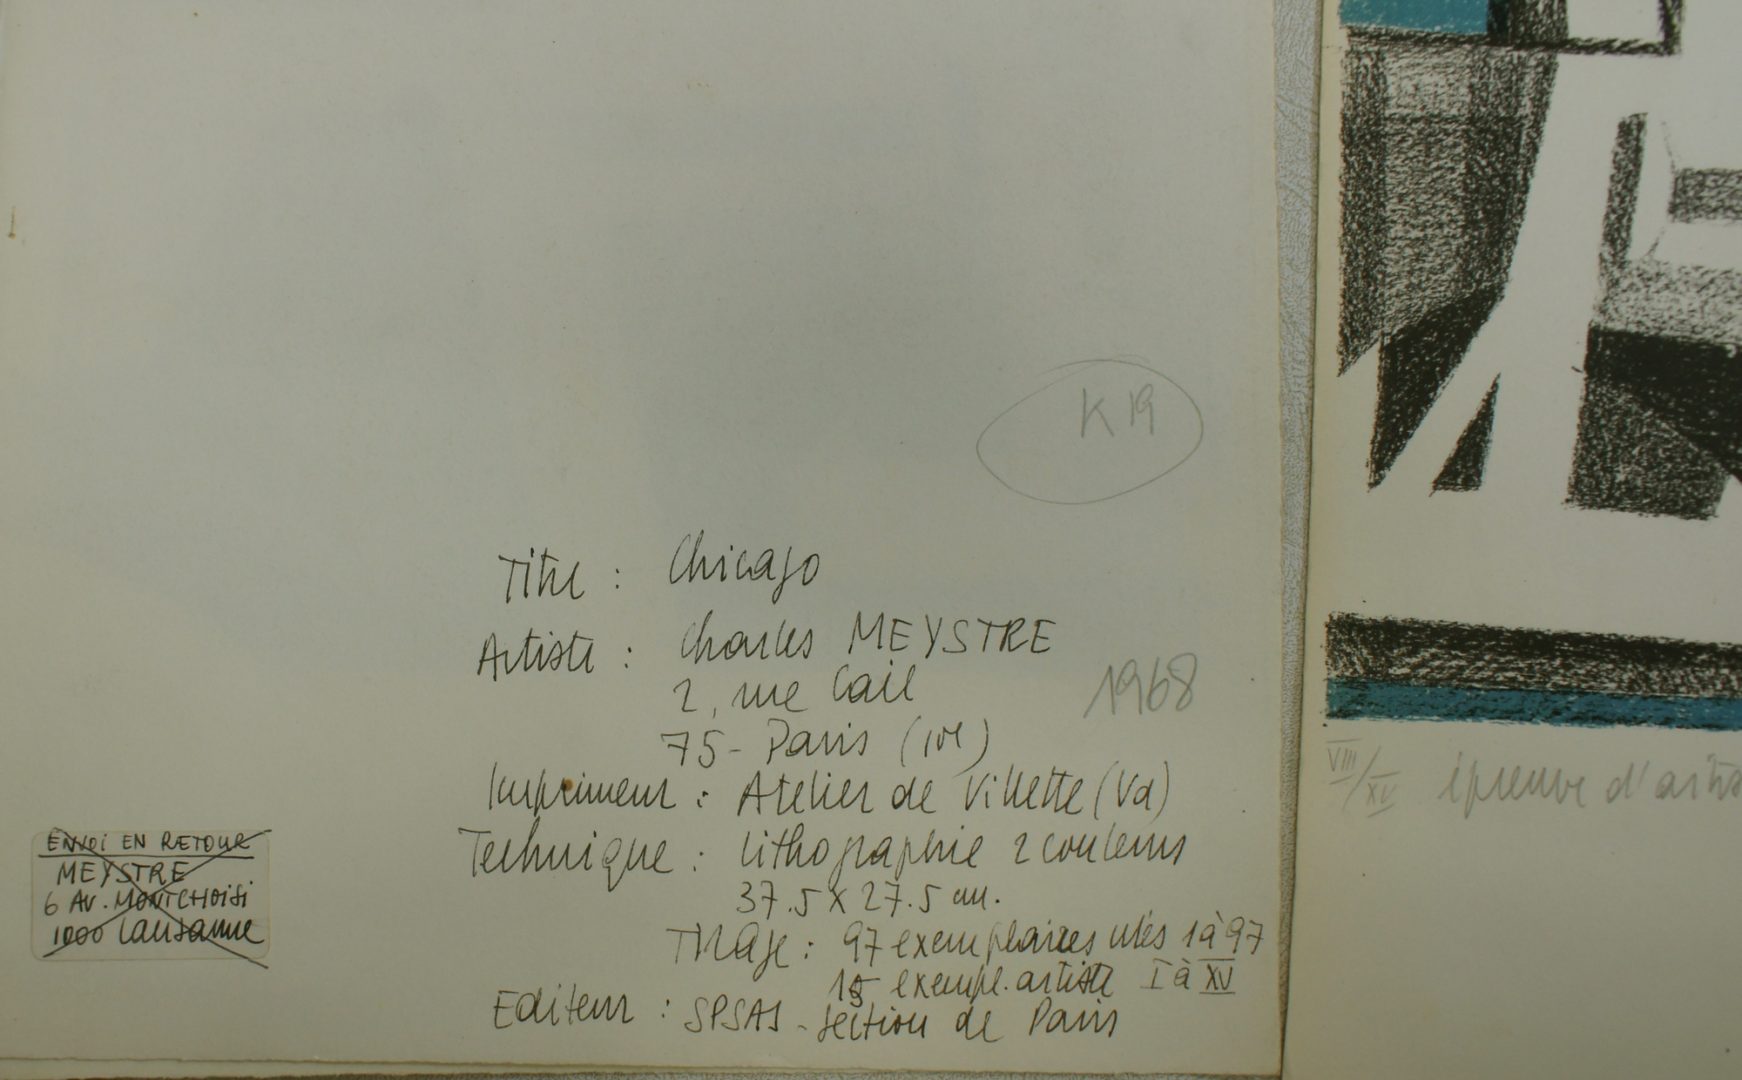 K 19
Titre : Chicago
Artiste : Charles MEYSTRE
2, rue Cail
1968
75 - Paris (10e)
Imprimeur : Atelier de Villette (Vd)
Technique : lithographie 2 couleurs
37.5 x 27.5 cm.
Tirage : 97 exemplaires nés 1 à 97
15 exempl. artiste I à XV
Editeur : SPSAS - section de Paris
ENVOI EN RETOUR
MEYSTRE
6 AV. MONTCHOISI
1000 Lausanne
VIII/XV épreuve d'artis